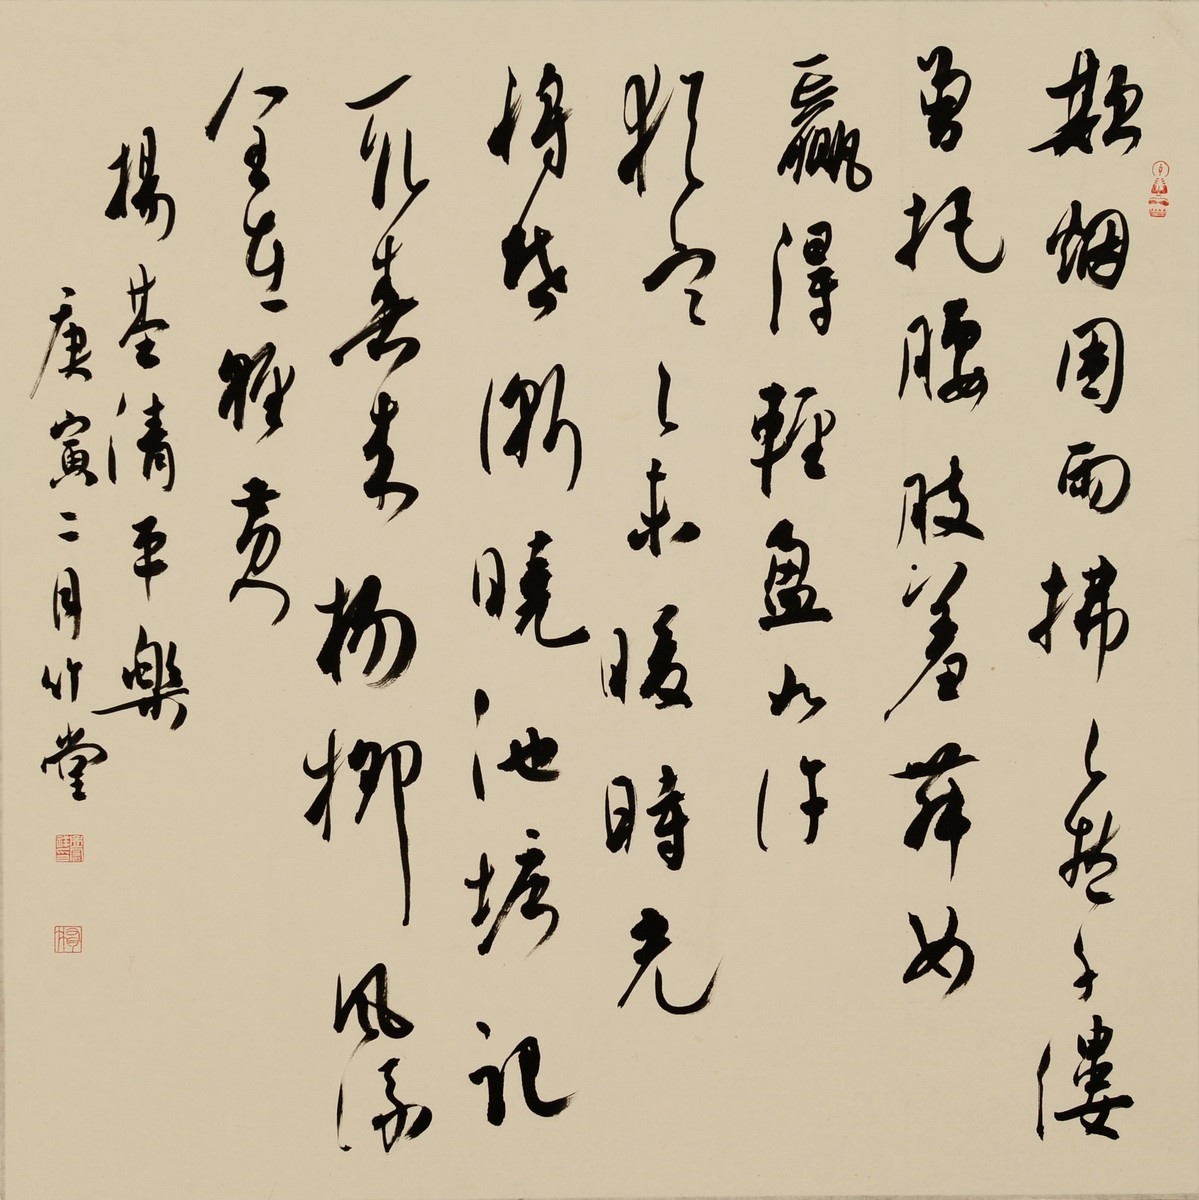 欺烟困雨拂〻愁千縷
曾把腰肢羞舞女
贏得輕盈如許
猶寒未暖時光
將昏漸曉池塘記
取春來楊柳風流
全在輕黃
楊基清平樂
庚寅二月竹堂